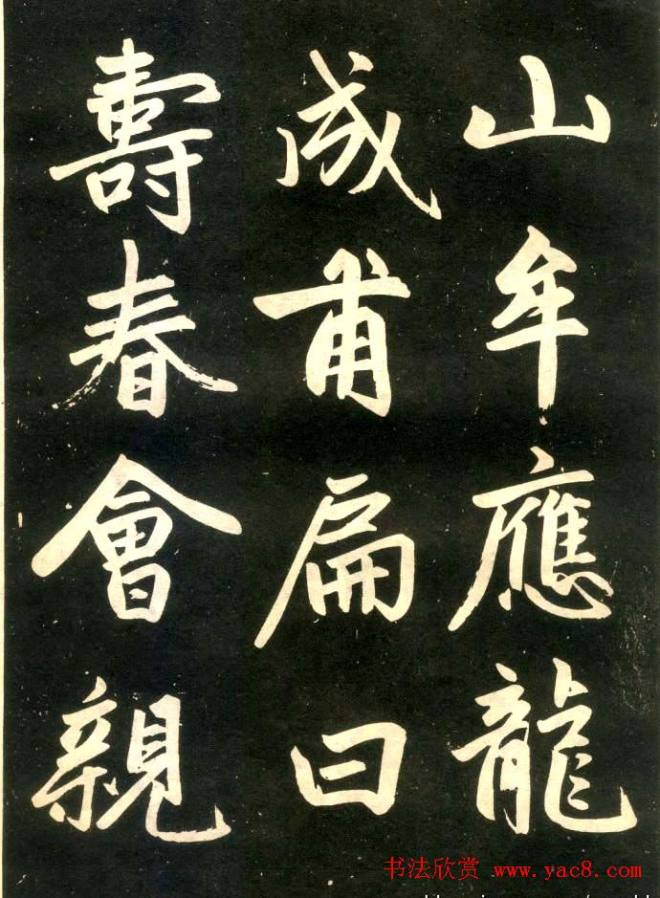 山牟應龍
成甫扁曰
壽春會親
书法欣赏 www.yac8.com